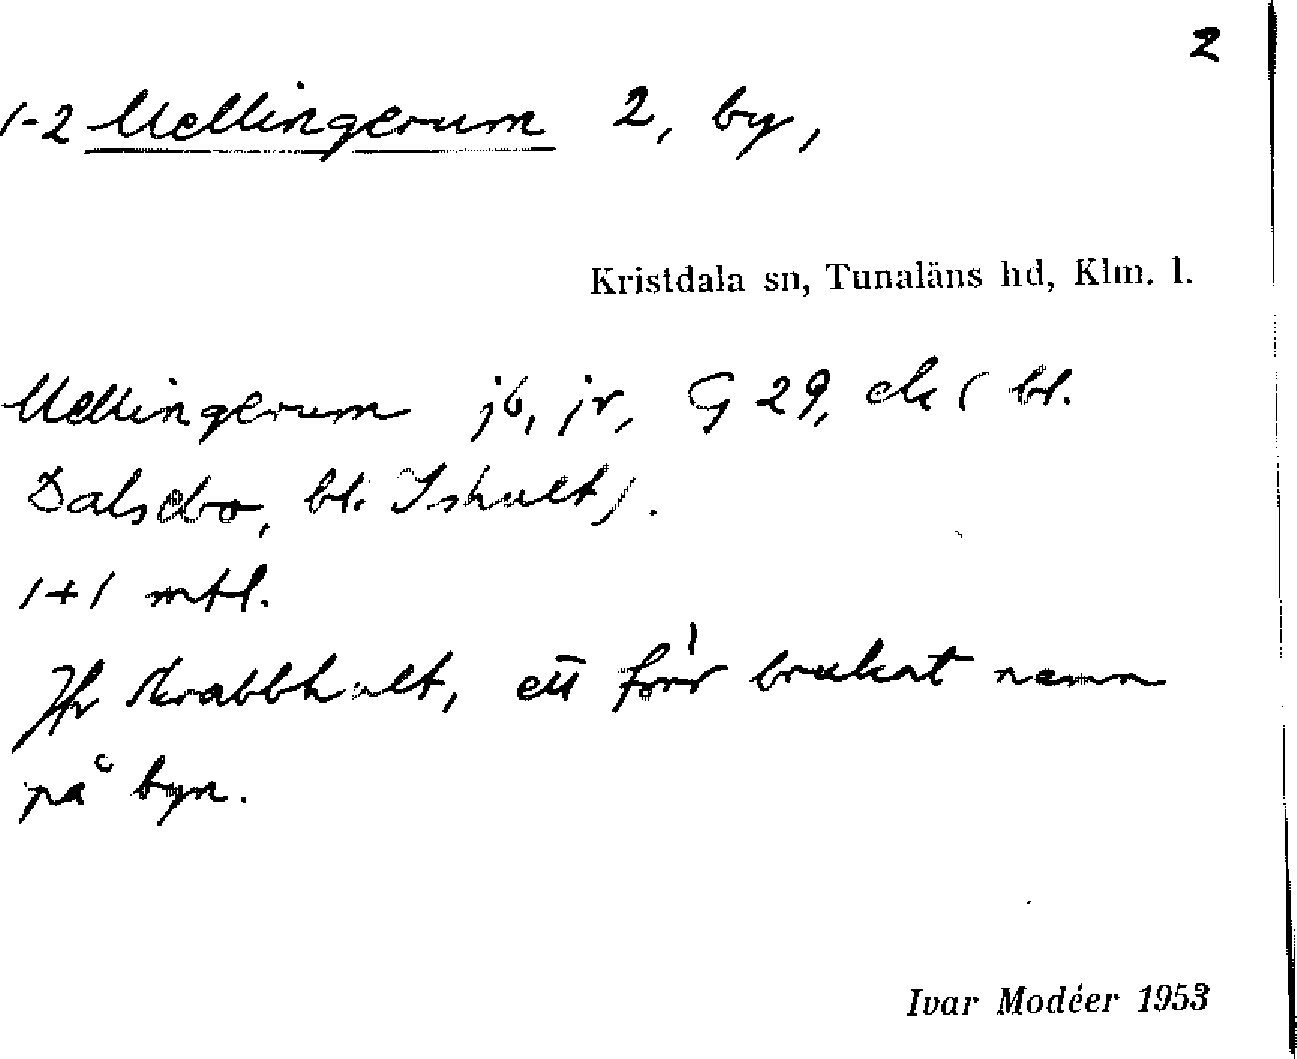 2
1-2 Mellingerum 2, by,
Kristdala sn, Tunaläns hd, Klm. l.
Mellingerum jb, jr, G 29, ek ( bl.
Dalsebo, bl. Ishult).
1+1 mtl.
Jfr Krabbhult, ett förr brukat namn
på byn.
Ivar Modéer 1953